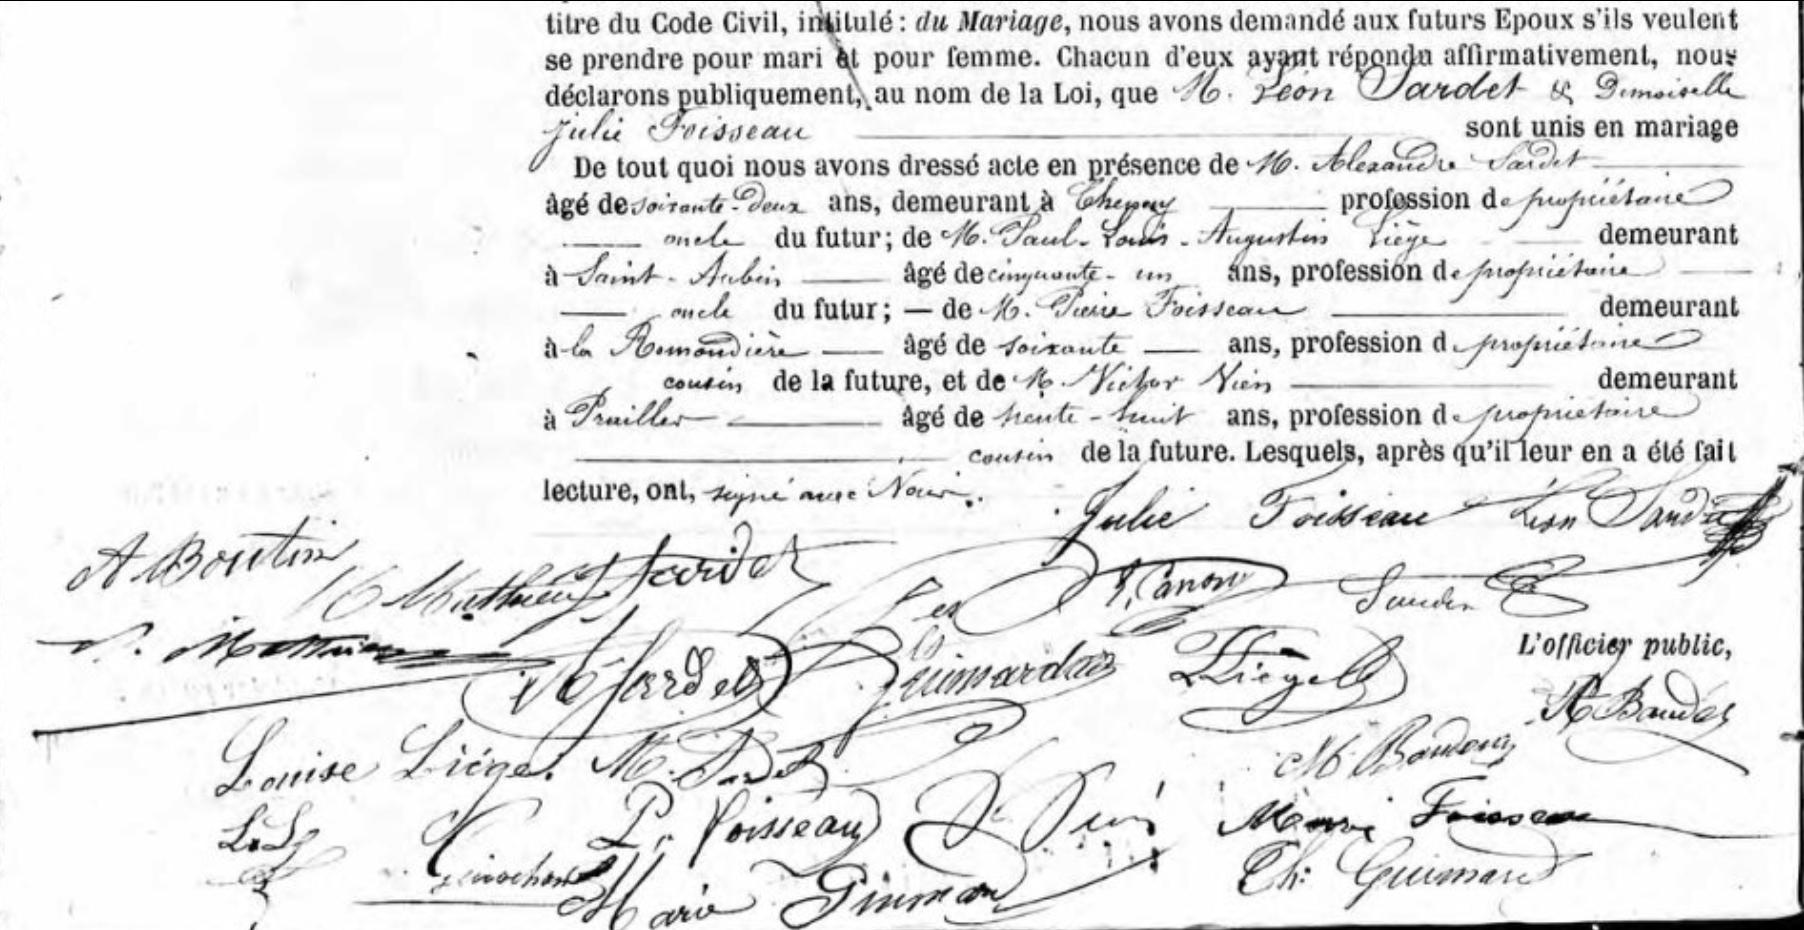 titre du Code Civil, intitulé : du Mariage, nous avons demandé aux futurs Epoux s'ils veulent
se prendre pour mari et pour femme. Chacun d'eux ayant répondu affirmativement, nous
déclarons publiquement, au nom de la Loi, que M. Léon Sardet & Demoiselle
Julie Foisseau sont unis en mariage
De tout quoi nous avons dressé acte en présence de M. Alexandre Sardet
âgé de soixante-deux ans, demeurant à profession de propriétaire
oncle du futur ; de M. Paul-Louis-Augustin Liège demeurant
à Saint-Aubin âgé de cinquante-un ans, profession de propriétaire
oncle du futur ; — de M. Pierre Foisseau demeurant
à la Romondière âgé de soixante ans, profession de propriétaire
cousin de la future, et de M. Victor Vien demeurant
à Prailles âgé de trente-huit ans, profession de propriétaire
cousin de la future. Lesquels, après qu'il leur en a été fait
lecture, ont, signé avec Nous.
Julie Foisseau Léon Sardet
A Boutin
Mathieu Sardet
L'officier public,
Sardet Liège
Louise Liège. M. Sardet
P. Foisseau Marie Foisseau
Marie Th. Guimard